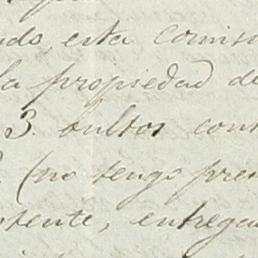 ado, esta Comis
la propiedad de
3. bultos con
(no tengo pre
tente, entrega